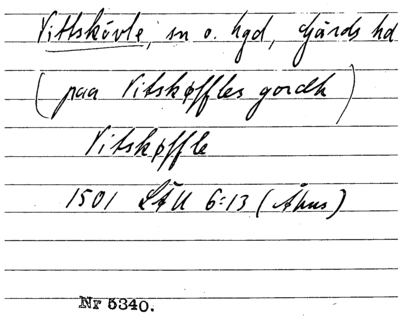 Vittskövle, sn o. hgd, Gärds hd
(paa Vitskøffles gordh)
Vitskøffle
1501 LÅU 6:13 (Åhus)
Nr 5340.